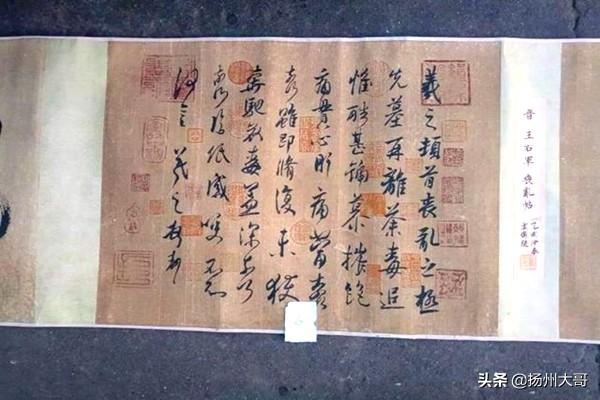 晉 王右軍 喪亂帖
羲之頓首喪亂之極
先墓再離荼毒追
惟酷甚號慕摧絕
痛貫心肝痛當奈何
奈何雖即脩復未獲
奔馳哀毒益深奈何
奈何臨紙感哽不知
何言羲之頓首頓首
头条 @扬州大哥